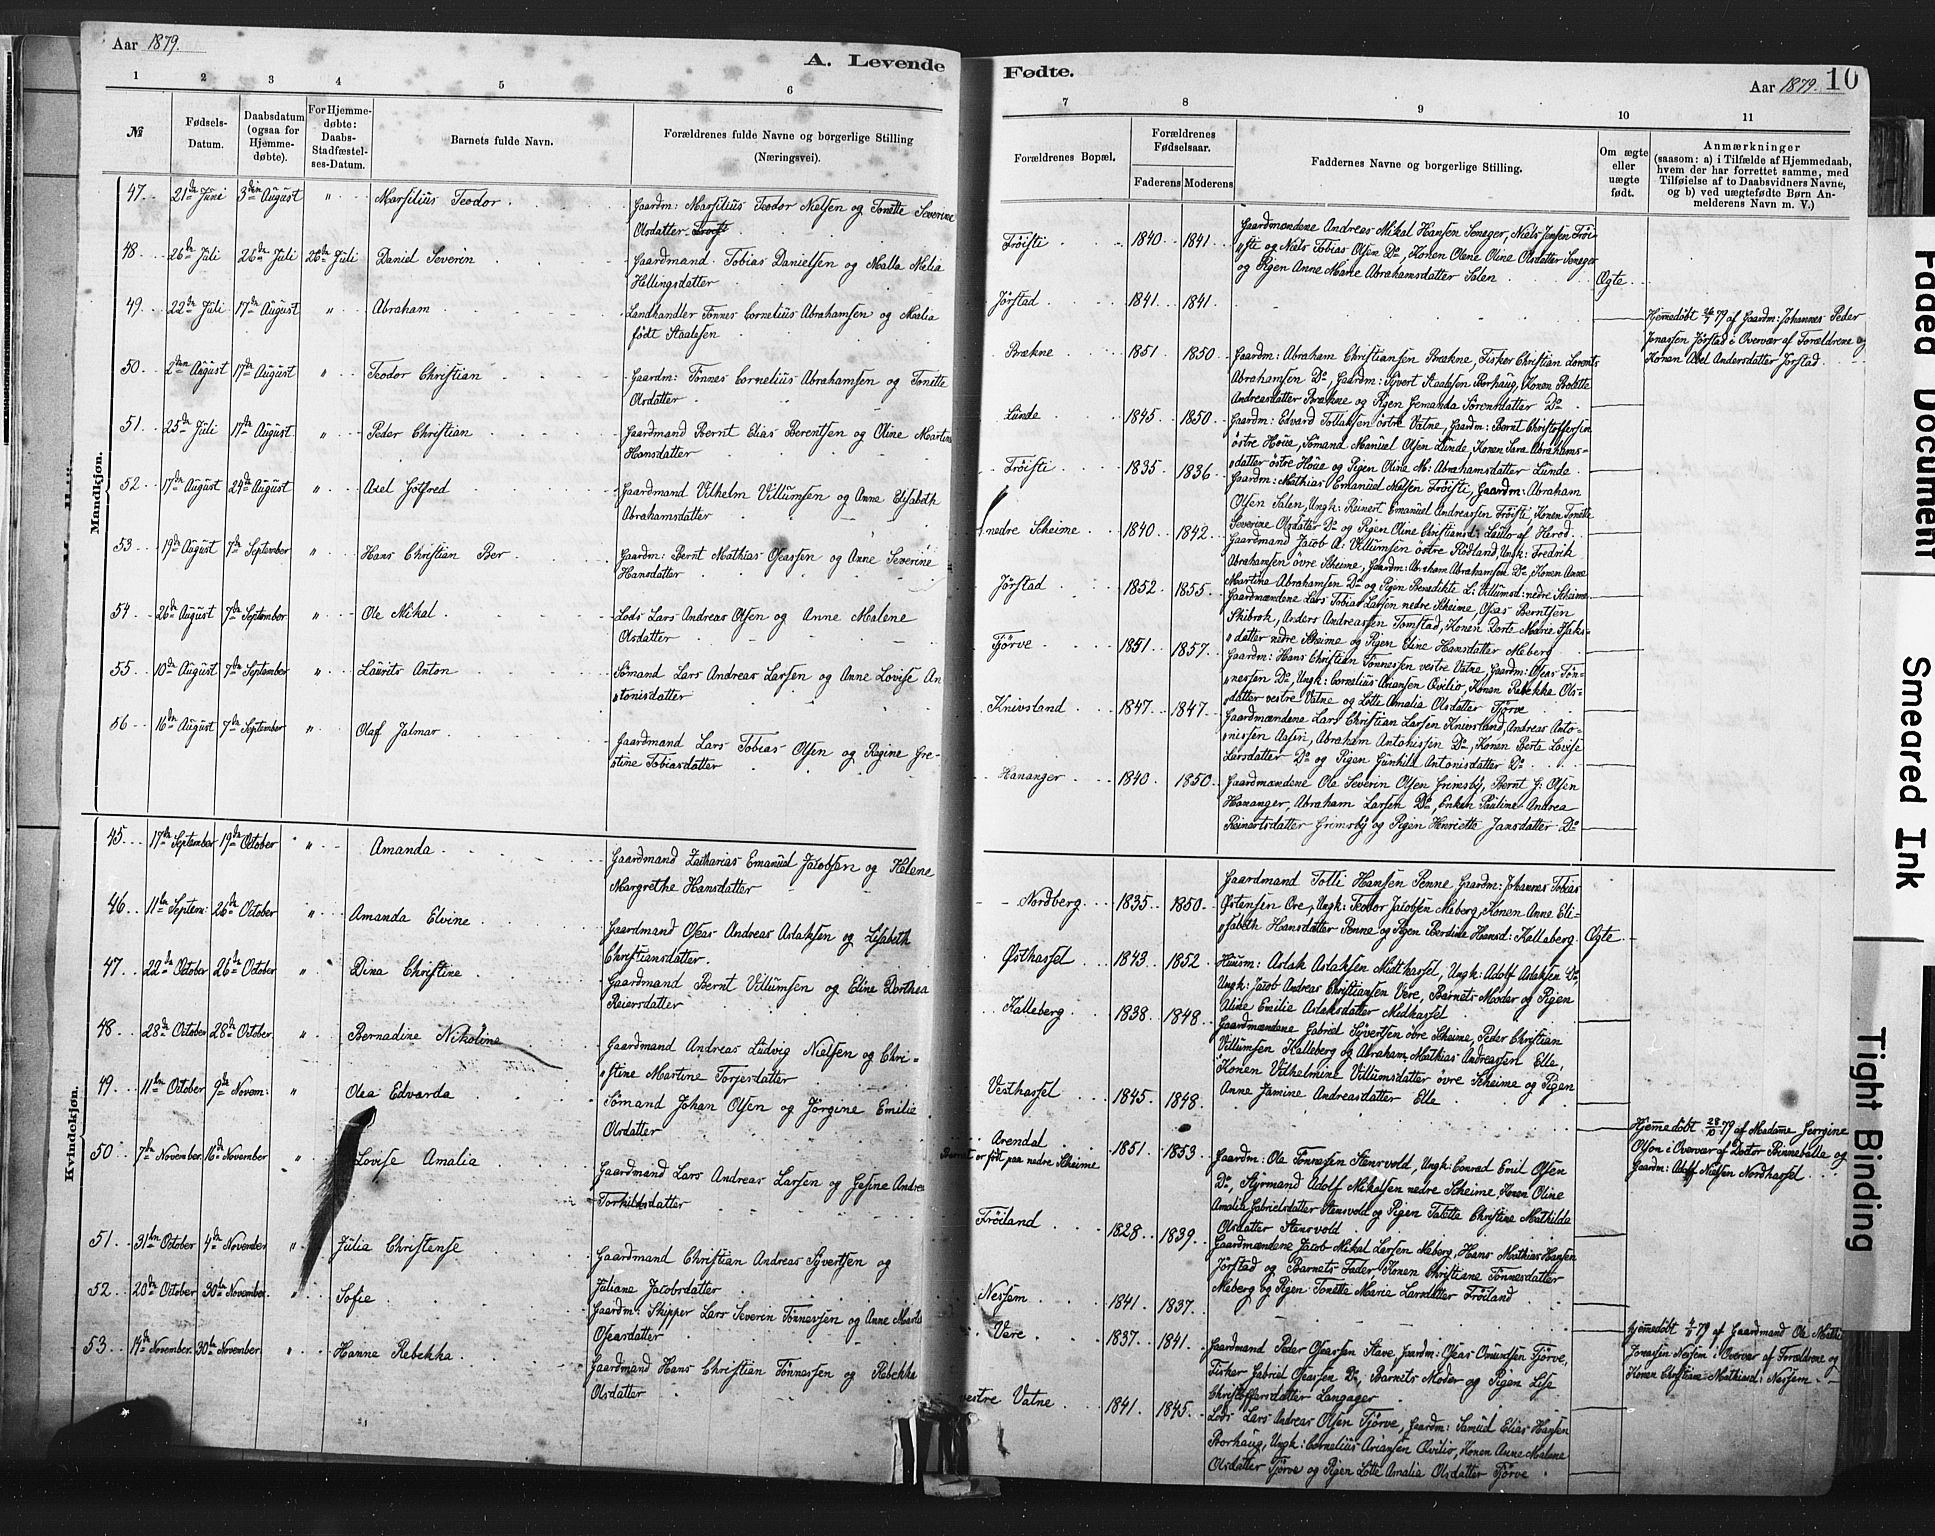 Aar 1879.
A. Levende
1 2 3 4 5 6
№
Fødsels-Datum.
Daabsdatum (ogsaa for Hjemme-døbte).
For Hjemme-døbte: Daabs-Stadfæstel-ses-Datum.
Barnets fulde Navn.
Forældrenes fulde Navne og borgerlige Stilling
(Næringsvei).
Mandkjøn.
47. 21de Juni 3die August " Marsilius Teodor. Gaardm: Marsilius Teodor Nielsen og Tonette Severine
Olsdatter
48. 26de Juli 26de Juli 26de Juli Daniel Severin Gaardmand Tobias Danielsen og Malla Melia
Hellingsdatter
49. 22de Juli 17de August " Abraham Landhandler Tönnes Cornelius Abrahamsen og Malia
födt Staalesen
50. 2den August 17de August " Teodor Christian Gaardm: Tönnes Cornelius Abrahamsen og Tonette
Olsdatter
51. 25de Juli 17de August " Peder Christian Gaardmand Bernt Elias Berentsen og Oline Martine
Hansdatter
52. 17de August 24de August " Axel Gotfred Gaardmand Vilhelm Villumsen og Anne Elisabeth
Abrahamsdatter
53. 19de August 7de September " Hans Christian Ber Gaardm: Bernt Mathias Oseassen og Anne Severine
Hansdatter
54. 26de August 7de September " Ole Mikal Lods Lars Andreas Olsen og Anne Malene
Olsdatter
55. 10de August 7de September " Laurits Anton Sömand Lars Andreas Larsen og Anne Lovise An
"tonisdatter
56. 16de August 7de September " Olaf Jalmar Gaardmand Lars Tobias Olsen og Regine Gre-
"tine Tobiasdatter
Kvindekjøn.
45. 17de September 19de October " Amanda Gaardmand Zacharias Emanuel Jacobsen og Helene
Margrethe Hansdatter
46. 11te Septem: 26de October " Amanda Elvine Gaardmand Oseas Andreas Aslaksen og Lisabeth
Christiansdatter.
47. 22de October 26de October " Dina Christine Gaardmand Bernt Villumsen og Eline Dorthea
Reiersdatter
48. 28de October 28de October " Bernadine Nikoline Gaardmand Andreas Ludvig Nielsen og Chri-
"stine Martine Torjesdatter
49. 11te October 9de Novem: " Olea Edvarda Sömand Johan Olsen og Jörgine Emilie
Olsdatter
50. 7de November 16de November " Lovise Amalia Gaardmand Lars Andreas Larsen og Gesine Andrea
Torkildsdatter
51. 31te October 4de November " Julia Christense Gaardmand Christian Andreas Syvertsen og
Juliane Jacobsdatter
52. 20de October 30te November " Sofie Gaardm: Skipper Lars Severin Tönnessen og Anne Marta
Oseasdatter
53. 14de November 30te November " Hanne Rebekka Gaardmand Hans Christian Tönnessen og Rebekka
Olsdatter
Fødte.
Aar 1879. 10
7 8 9 10 11
Forældrenes Bopæl.
Forældrenes Fødselsaar.
Faderens Moderens
Faddernes Navne og borgerlige Stilling.
Om ægte eller uægte født.
Anmærkninger
(saasom: a) i Tilfælde af Hjemmedaab,
hvem der har forrettet samme, med
Tilføielse af to Daabsvidners Navne,
og b) ved uægtefødte Børn An-
melderens Navn m. V.)
Fröisti 1840 1841 Gaardmændene Andreas Mikal Hansen Seneger, Niels Jensen Fröi
"sti og Niels Tobias Olsen Do, Konen Olene Oline Olsdatter Seneger
og Pigen Anne Marie Abrahamsdatter Salen Ægte
Jörstad 1841 1841
Hjemedöbt 26/7 79 af Gaardm: Johannes Peder
Jonassen Jörstad i Overvær af Forældrene og
Konen Abel Andersdatter Jörstad
Brækne 1851 1850 Gaardm: Abraham Christiansen Brækne, Fisker Christian Lorents
Abrahamsen Do, Gaardm: Syvert Staalesen Borhaug, Konen Bolette
Andreasdatter Brækne og Pigen Gemanda Sörensdatter Do
Lunde 1845 1850 Gaardm: Edvard Tollaksen östre Vatne, Gaardm: Bernt Christoffersen
östre Höue, Sömand Manuel Olsen Lunde, Konen Sara Abrahams-
"datter östre Höue og Pigen Olina M: Abrahamsdatter Lunde
Fröisti 1835 1836 Gaardm: Mathias Emanuel Nielsen Fröisti, Gaardm: Abraham
Olsen Salen, Ungk: Reinert Emanuel Andreassen Fröisti, Konen Tonette
Severine Olsdatter Do og Pigen Oline Christiansd: Lailo af Herod
nedre Skeime 1840 1842 Gaardmand Jacob A: Villumsen östre Rödland, Ungk: Fredrik
Abrahamsen övre Skeime, Gaardm: Abraham Abrahamsen Do, Konen Anne
Martina Abrahamsen Do og Pigen Benedikte L: Villumsd: nedre Skeime
Jörstad 1852 1855 Gaardmændene Lars Tobias Larsen nedre Skeime, Oseas Berntsen
Skibrok, Anders Andreassen Tomstad, Konen Dorte Maria Isaks-
"datter nedre Skeime og Pigen Eline Hansdatter Meberg
Tjörve 1851 1857 Gaardm: Hans Christian Tönnessen vestre Vatne, Gaardm: Oseas Tön-
"nessen Do, Ungk: Cornelius Ariansen Övilio, Konen Rebekka Ols-
datter vestre Vatne og Lotte Amalia Olsdatter Tjörve
Knivsland 1847 1847 Gaardmændene Lars Christian Larsen Knivsland, Andreas Anto-
"nissen Aasen, Abraham Antonissen Do, Konen Berte Lovise
Larsdatter Do og Pigen Gunhild Antonisdatter Do
Hananger 1840 1850 Gaardmændene Ole Severin Olsen Grimsby, Bernt G: Olsen
Hananger, Abraham Larsen Do, Enken Pauline Andrea
Reinertsdatter Grimsby og Pigen Henriette Jansdatter Do
Nordberg 1835 1850 Gaardmand Tolli Hansen Penne, Gaardm: Johannes Tobias
Östensen Ore, Ungk: Teodor Jacobsen Meberg, Konen Anne Eli-
"sabeth Hansdatter Penne og Pigen Berdine Hansd: Kalleberg Ægte
Östhassel 1843 1852 Huusm: Aslak Aslaksen Midthassel, Ungk: Adolf Aslaksen Do,
Ungk: Jacob Andreas Christiansen Vere, Barnets Moder og Pigen
Aline Emilie Aslaksdatter Midhassel
Kalleberg 1838 1848 Gaardmændene Gabriel Syvertsen övre Skeime, Peder Christian
Villumsen Kalleberg og Abraham Mathias Andreassen Elle,
Konen Vilhelmine Villumsdatter övre Skeime og Pigen
Anne Jamine Andreasdatter Elle
Vesthassel 1845 1848
Hjemmedöbt 28/10 79 af Madame Georgine
Olson i Overvær af Doctor Binneballe og
Gaardm: Adolf Nielsen Nordhassel
Arendal 1851 1853
Barnet er født paa nedre Skeime
Gaardm: Ole Tönnessen Stensvold, Ungk: Conrad Emil Olsen
Do, Styrmand Adolf Mikalsen nedre Skeime, Konen Oline
Amalia Gabrielsdatter Stensvold og Pigen Talette Christine Mathilda
Olsdatter Stensvold
Fröiland 1828 1839 Gaardmændene Jacob Mikal Larsen Meberg, Hans Mathias Hansen
Jörstad og Barnets Fader, Konen Christiane Tönnesdatter
Meberg og Pigen Tonette Marie Larsdatter Fröiland
Nesjem 1841 1837
hjemedöbt 4/11 79 af Gaardmand Ole Mathi
Jonassen Nesjem i Overvær af Forældrene og
Konen Christiane Mathiasd: Nesjem
Vere 1837 1841 Gaardmand Peder Oseassen Stave, Gaardm: Oseas Omundsen Tjörve,
Fisker Gabriel Oseassen Do, Barnets Moder og Pigen Lise
Christoffersdatter Langager
vestre Vatne 1841 1845 Lods Lars Andreas Olsen Tjörve, Gaardm: Samuel Elias Hansen
Borhaug, Ungk: Cornelius Ariansen Övilio, Konen Anne Malene
Olsdatter Tjörve og Pigen Lotte Amalia Olsdatter Tjörve
Faded Document
Smeared Ink
Tight Binding